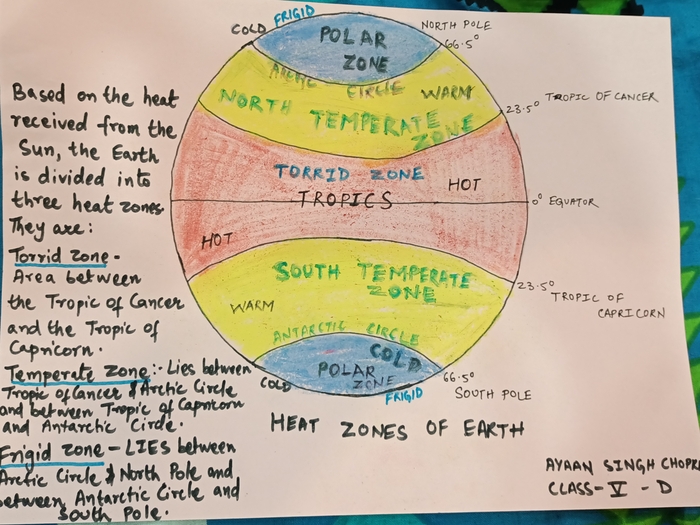 COLD FRIGID
NORTH POLE
POLAR
ZONE
66.5°
ARCTIC CIRCLE
WARM
NORTH TEMPERATE
ZONE
23.5° TROPIC OF CANCER
TORRID ZONE
HOT
TROPICS
0° EQUATOR
HOT
SOUTH TEMPERATE
ZONE
WARM
23.5°
TROPIC OF
CAPRICORN
ANTARCTIC CIRCLE
COLD
POLAR
ZONE
COLD
66.5°
FRIGID
SOUTH POLE
HEAT ZONES OF EARTH
Based on the heat
received from the
Sun, the Earth
is divided into
three heat zones.
They are:
Torrid zone -
Area between
the Tropic of Cancer
and the Tropic of
Capricorn.
Temperate zone:- Lies between
Tropic of Cancer & Arctic Circle
and between Tropic of Capricorn
and Antarctic Circle.
Frigid zone - LIES between
Arctic Circle & North Pole and
between Antarctic Circle and
South Pole.
AYAAN SINGH CHOPR
CLASS - V - D